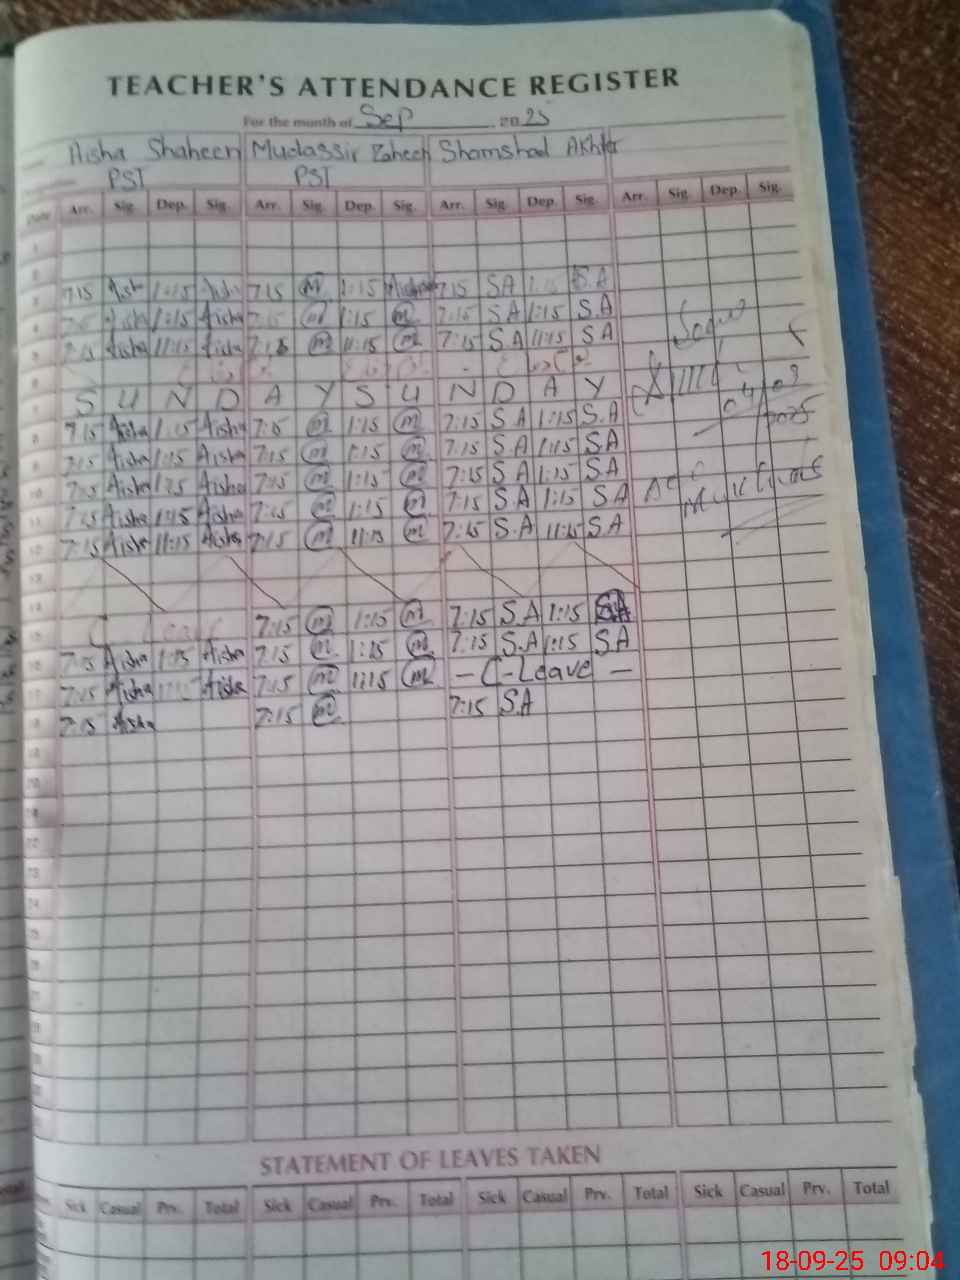 TEACHER'S ATTENDANCE REGISTER
For the month of Sep 2025
Aisha Shaheen Mudassir Zaheer Shamshad Akhter
PST PST
Date Arr. Sig. Dep. Sig. Arr. Sig. Dep. Sig. Arr. Sig. Dep. Sig. Arr. Sig. Dep. Sig.
1
2
3 7:15 Aish 1:15 Aisha 7:15 M 1:15 7:15 SA 1:15 S.A
4 7:15 Aisha 1:15 Aisha 7:15 m 1:15 m 7:15 S.A 1:15 S.A
5 7:15 Aisha 11:15 Aisha 7:15 m 11:15 m 7:15 S.A 11:15 S A
S U N D A Y S U N D A Y
04/09
2025
8 7:15 Aisha 1:15 Aisha 7:15 m 1:15 m 7:15 S A 1:15 S.A
9 7:15 Aisha 1:15 Aisha 7:15 m 1:15 m 7:15 S.A 1:15 S.A
10 7:15 Aisha 1:15 Aisha 7:15 m 1:15 m 7:15 S.A 1:15 S.A
11 7:15 Aisha 1:15 Aisha 7:15 m 1:15 m 7:15 S.A 1:15 S A
12 7:15 Aisha 11:15 Aisha 7:15 m 11:15 m 7:15 S.A 11:15 S.A
13
14
15 C Leave 7:15 m 1:15 m 7:15 S.A 1:15 S.A
16 7:15 Aisha 1:15 Aisha 7:15 m 1:15 m 7:15 S.A 1:15 S A
17 7:15 Aisha Aisha 7:15 m 1:15 m - C-Leave -
18 7:15 Aisha 7:15 m 7:15 S.A
19
20
21
22
23
24
25
26
27
28
STATEMENT OF LEAVES TAKEN
Sick Casual Prv. Total Sick Casual Prv. Total Sick Casual Prv. Total Sick Casual Prv. Total
18-09-25 09:04